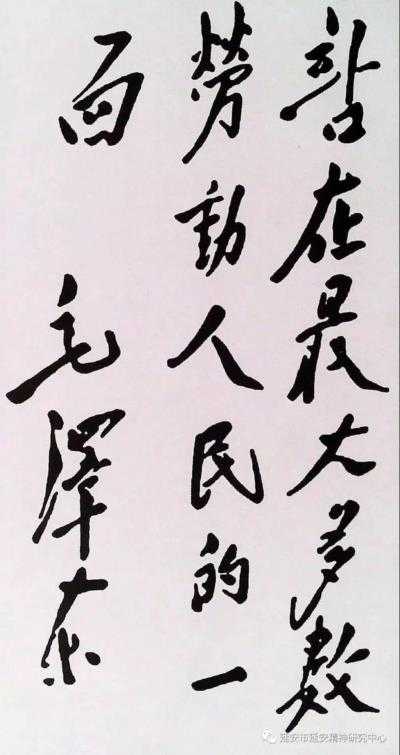 站在最大多数
勞動人民的一
面 毛澤东
延安市延安精神研究中心